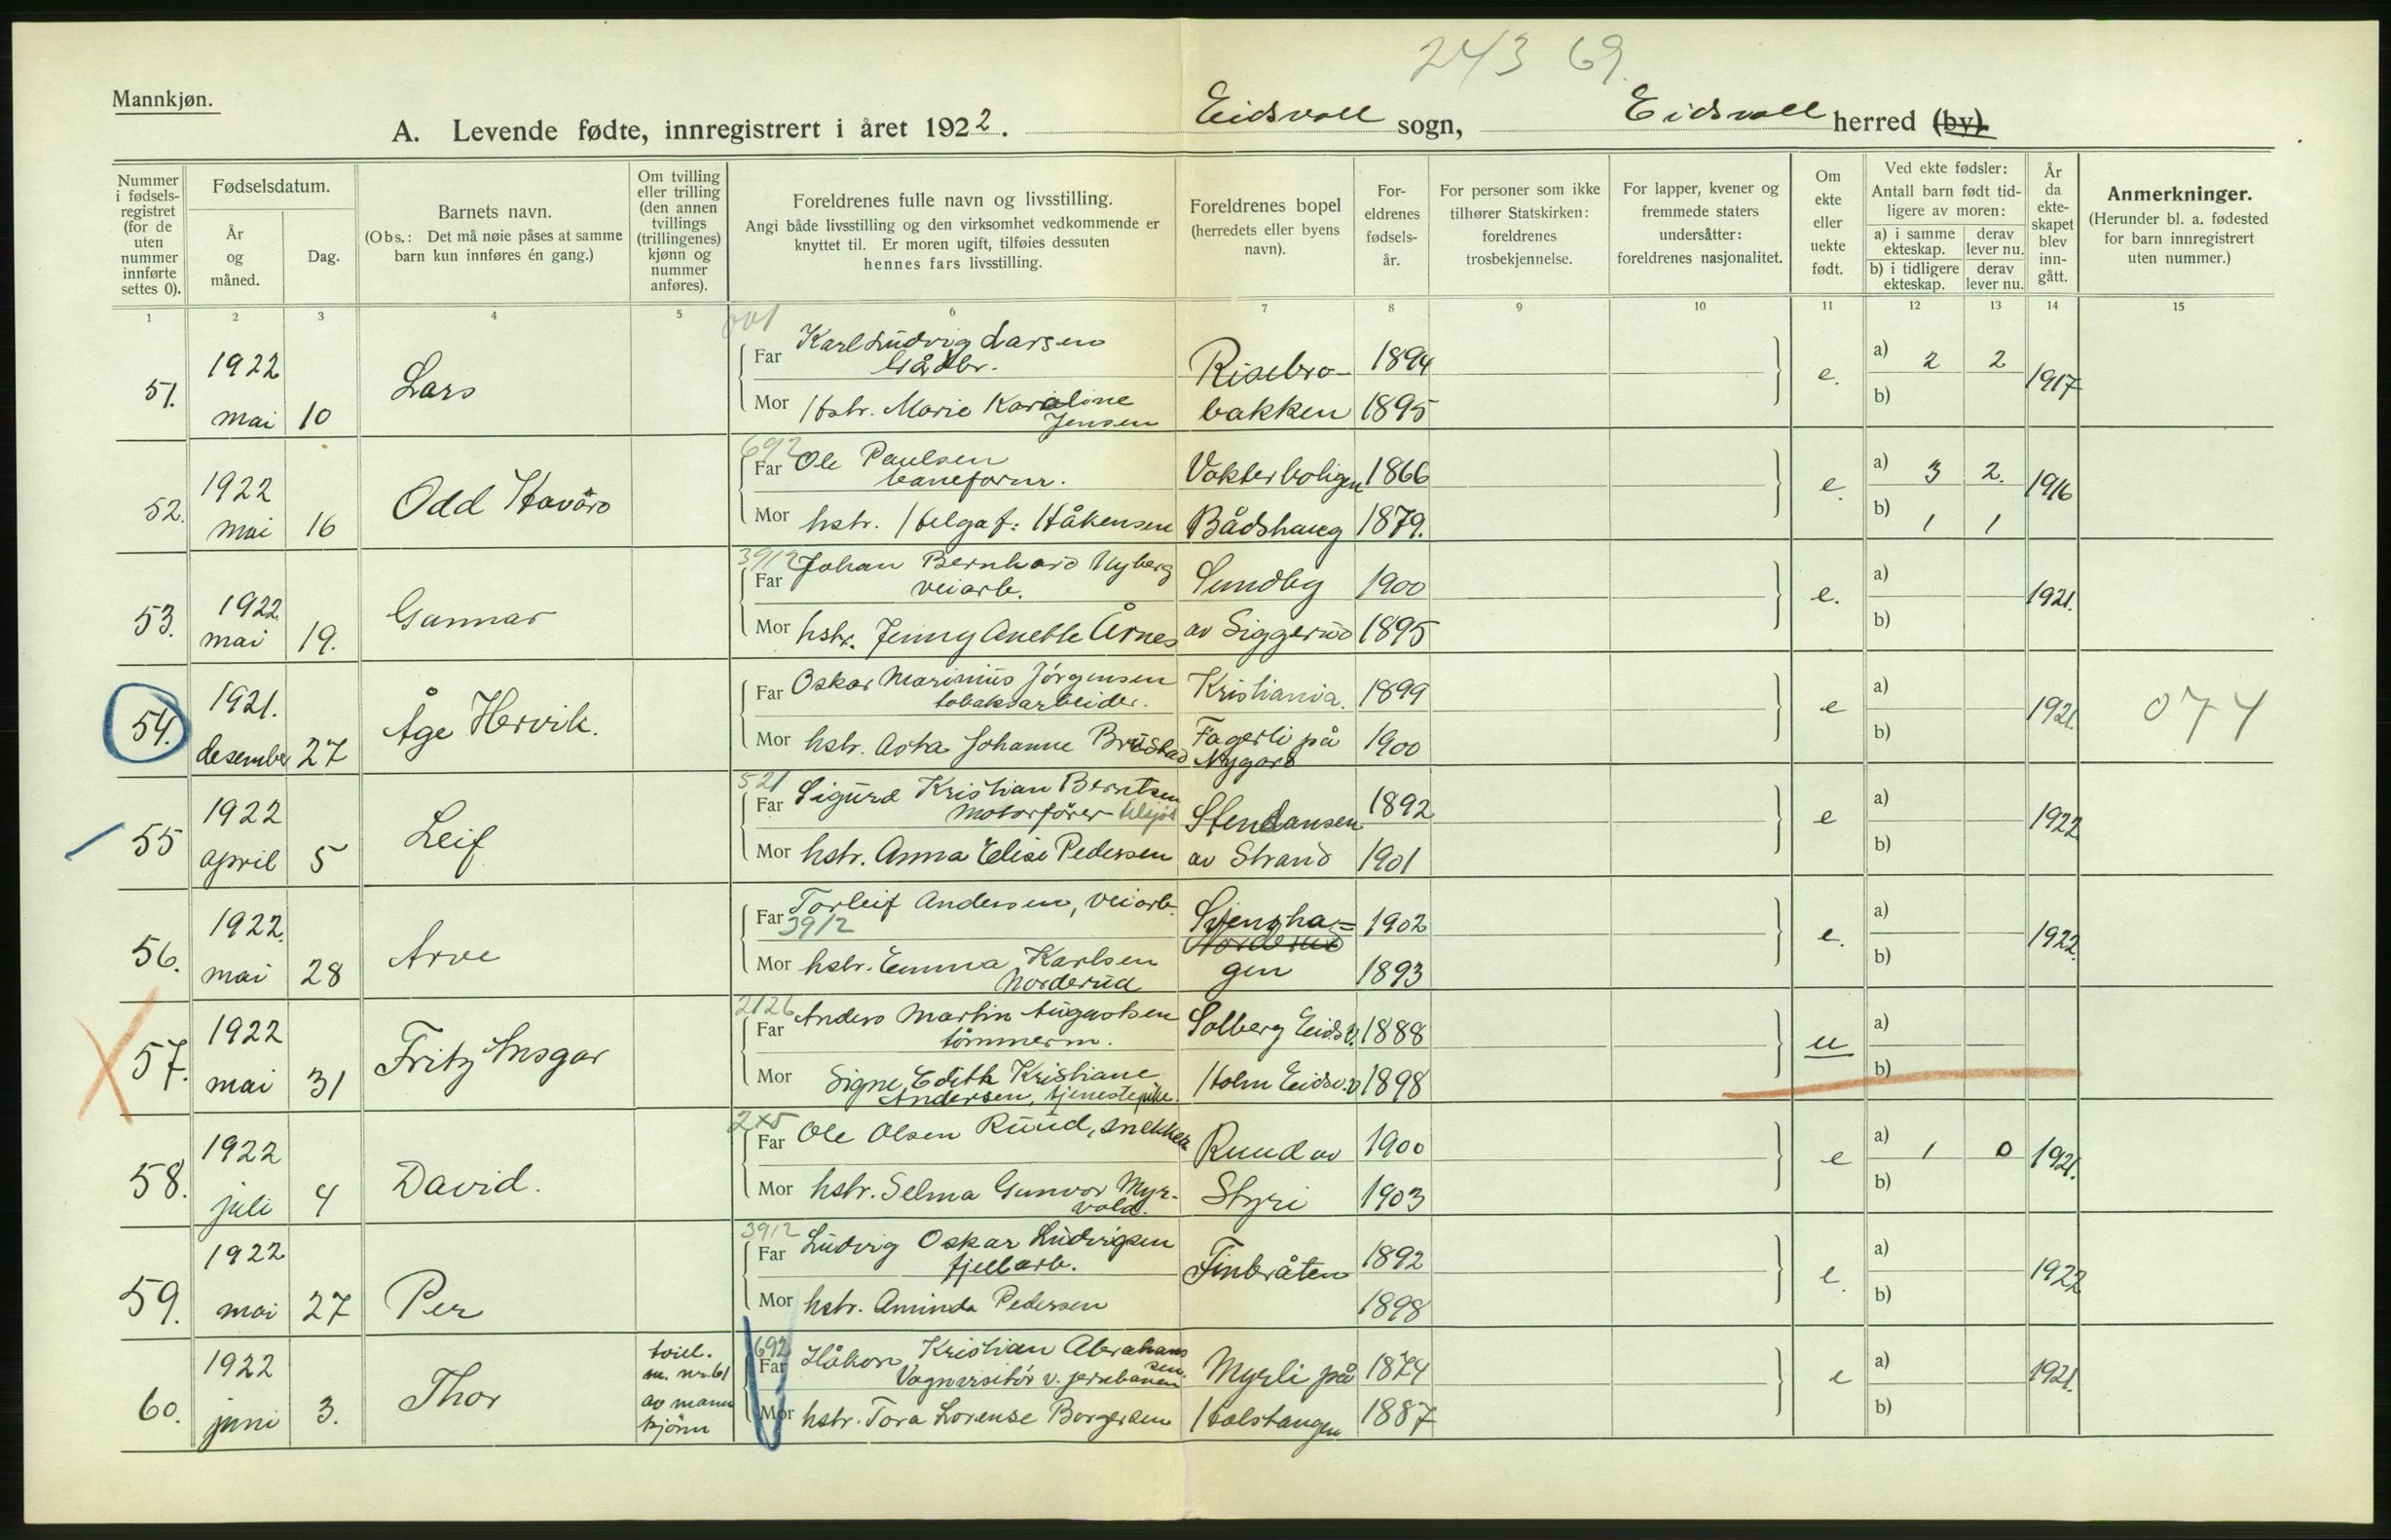 243 69.
Mannkjøn.
A. Levende fødte, innregistrert i året 1922. Eidsvoll sogn, Eidsvoll herred (by).
Nummer i fødselsregistret (for de uten nummer innførte settes 0).
Fødselsdatum.
År og måned.
Dag.
Barnets navn.
(Obs.: Det må nøie påses at samme barn kun innføres én gang.)
Om tvilling eller trilling (den annen tvillings (trillingenes) kjønn og nummer anføres).
Foreldrenes fulle navn og livsstilling.
Angi både livsstilling og den virksomhet vedkommende er knyttet til. Er moren ugift, tilføies dessuten hennes fars livsstilling.
Foreldrenes bopel (herredets eller byens navn).
Foreldrenes fødselsår.
For personer som ikke tilhører Statskirken: foreldrenes trosbekjennelse.
For lapper, kvener og fremmede staters undersåtter: foreldrenes nasjonalitet.
Om ekte eller uekte født.
Ved ekte fødsler: Antall barn født tidligere av moren:
a) i samme ekteskap. derav lever nu.
b) i tidligere ekteskap. derav lever nu.
År da ekteskapet blev inngått.
Anmerkninger.
(Herunder bl. a. fødested for barn innregistrert uten nummer.)
1 2 3 4 5 6 7 8 9 10 11 12 13 14 15
001
51. 1922 mai 10 Lars
Far Karl Ludvig Larsen Gårdbr. Risebro- 1894
Mor Hstr. Marie Karoline Jensen bakken 1895
e. a) 2 2 b) 1917
692
52. 1922 mai 16 Odd Havard
Far Ole Paulsen baneform. Vokterboligen 1866
Mor hstr. Helga f: Håkensen Bådshaug 1879.
e. a) 3 2. b) 1 1 1916
3912
53. 1922 mai 19. Gunnar
Far Johan Bernhard Nyberg veiarb. Sundby 1900
Mor hstr. Jenny Anette Årnes av Siggerud 1895
e. a) b) 1921.
54. 1921. desember 27 Åge Hervik.
Far Oskar Marinius Jörgensen tobaksarbeider. Kristiania. 1899
Mor hstr. Asta Johanne Brustad Fagerli på Nygard 1900
e a) b) 1921. 074
521
55 1922 april 5 Leif
Far Sigurd Kristian Berntsen Motorförer Stendansen 1892
Mor hstr. Anna Elise Pedersen av Strand 1901
e a) b) 1922
56. 1922. mai 28 Arve
Far Torleif Andersen, veiarb. 3912 Svensha= Norderud 1902
Mor hstr. Emma Karlsen Norderud gen 1893
e. a) b) 1922.
2126
57. 1922 mai 31 Fritz Ansgar
Far Anders Martin Augustsen tömmerm. Solberg Eidsv. 1888
Mor Signe Edith Kristiane Andersen, tjenestepike. Holm Eidsv. 1898
u a) b)
2x5
58. 1922 juli 4 David.
Far Ole Olsen Ruud, snekker Ruud av 1900
Mor hstr. Selma Gunvor Myrvold. Styri 1903
e a) 1 0 b) 1921.
3912
59. 1922 mai 27 Per
Far Ludvig Oskar Ludvigsen fjellarb. Finbråten 1892
Mor hstr. Aminda Pedersen 1898
e. a) b) 1922
692
60. 1922 juni 3. Thor
tvill. m. nr. 61 av mannkjönn
Far Håkon Kristian Abrahamsen. Vognvisitör v. jernbanen Myrli på 1874
Mor hstr. Tora Lorense Borgersen Holstangen 1887
e a) b) 1921.